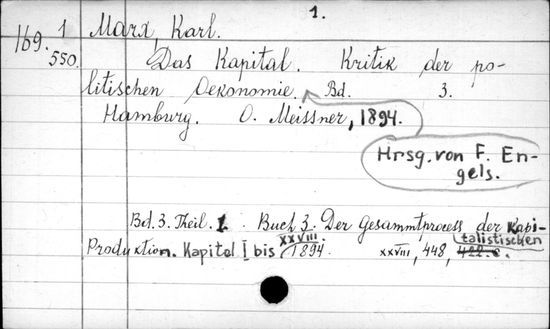 1.
169. 1 Marx, Karl.
550. Das Kapital. Kritik der po-
litischen Oekonomie. Bd. 3.
Hamburg. O. Meissner, 1894.
Hrsg. von F. En-
gels.
Bd. 3. Theil. 1. Buch 3. Der Gesammtprocess der Kapi-
talistischen
Produktion. Kapitel I bis XXVIII. 1894. XXVIII, 448,